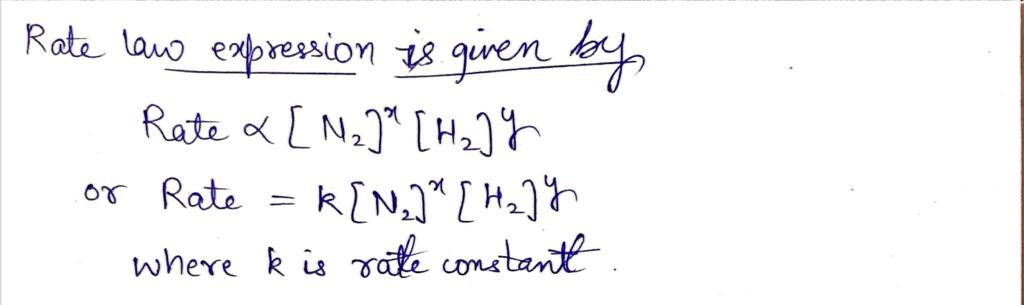 Rate law expression is given by
Rate ∝ [N₂]ˣ [H₂]ʸ
or Rate = k[N₂]ˣ [H₂]ʸ
where k is rate constant.